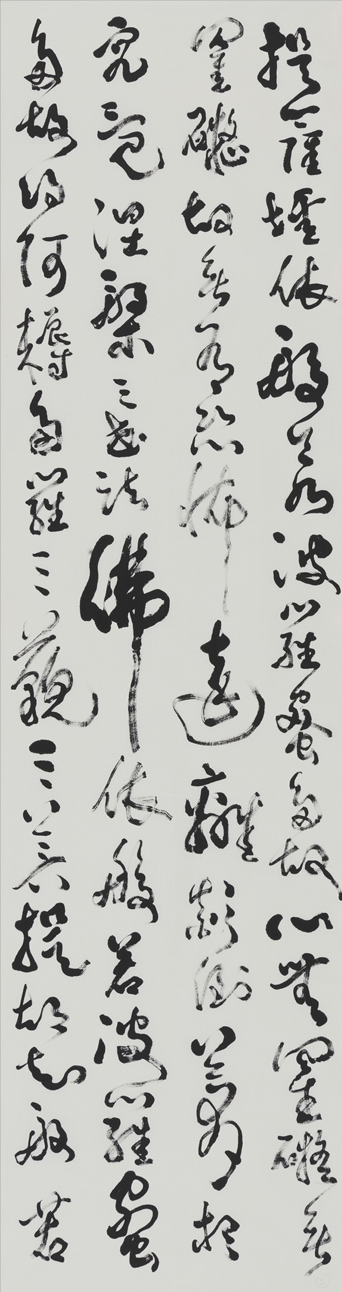 提薩埵依般若波羅蜜多故心無罣礙無
罣礙故無有恐怖遠離顛倒夢想
究竟涅槃三世諸佛依般若波羅蜜
多故得阿耨多羅三藐三菩提故知般若